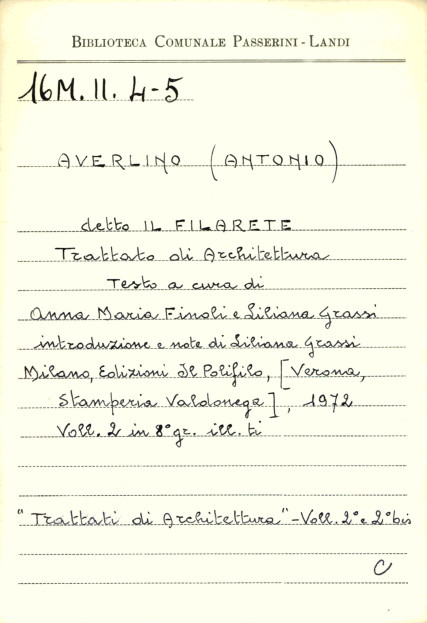 BIBLIOTECA COMUNALE PASSERINI - LANDI
16M.II. 4-5
AVERLINO (ANTONIO)
detto IL FILARETE
Trattato di Architettura
Testo a cura di
Anna Maria Finoli e Liliana Grassi
introduzione e note di Liliana Grassi
Milano, Edizioni Il Polifilo, [Verona,
Stamperia Valdonega], 1972
Voll. 2 in 8° gr. ill. ti
"Trattati di Architettura" - Voll. 2° e 2° bis
C